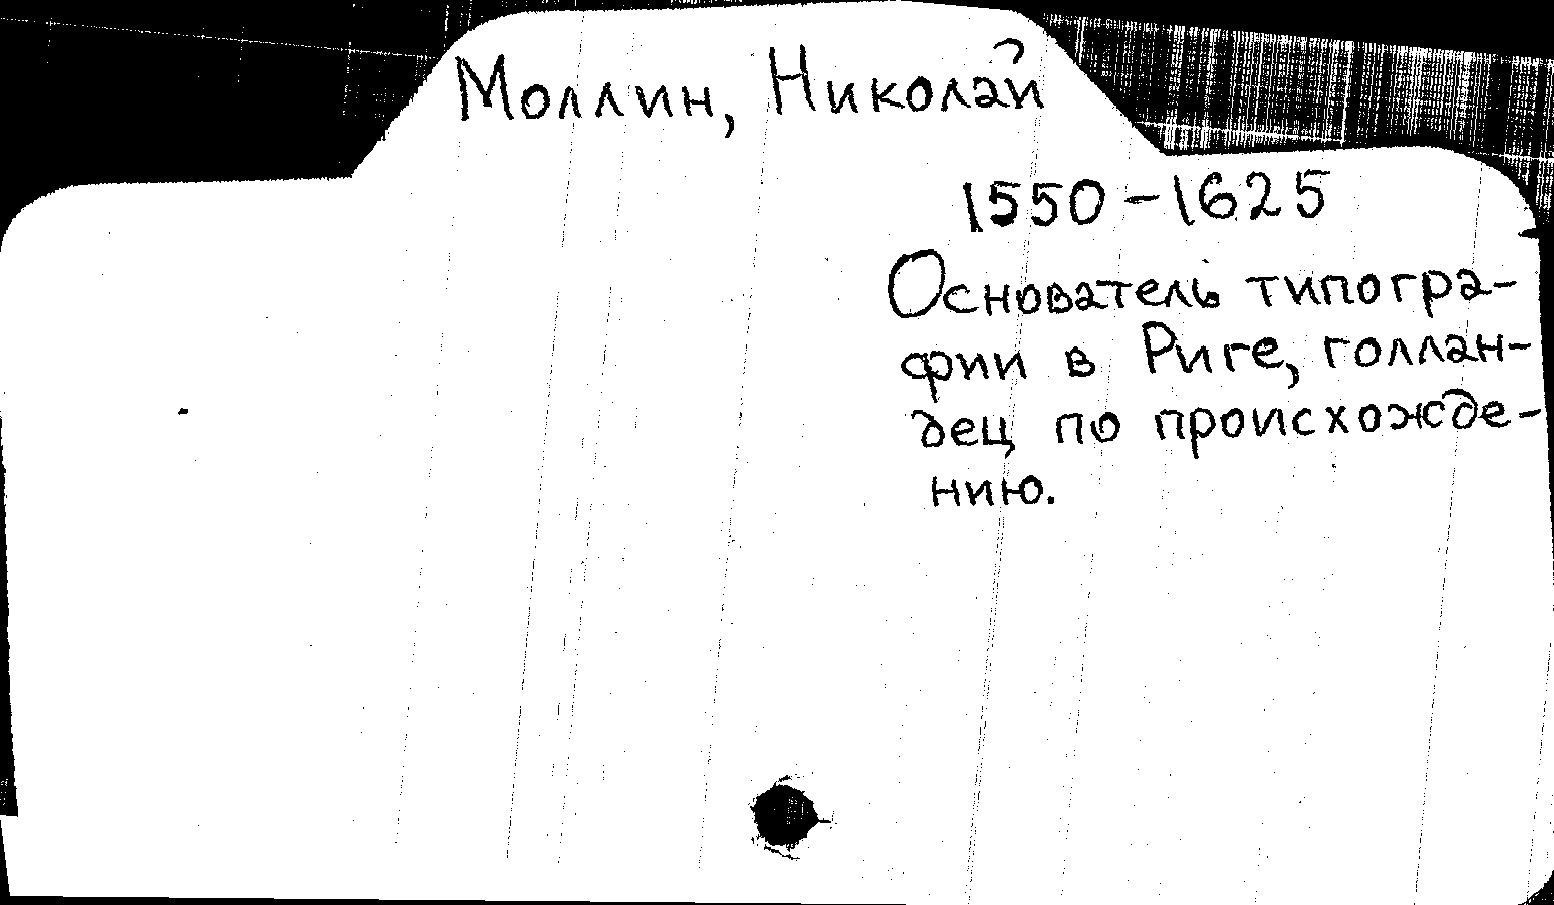 Моллин, Николай
1550-1625
Основатель типогра-
фии в Риге, голлан-
дец по происхожде-
нию.